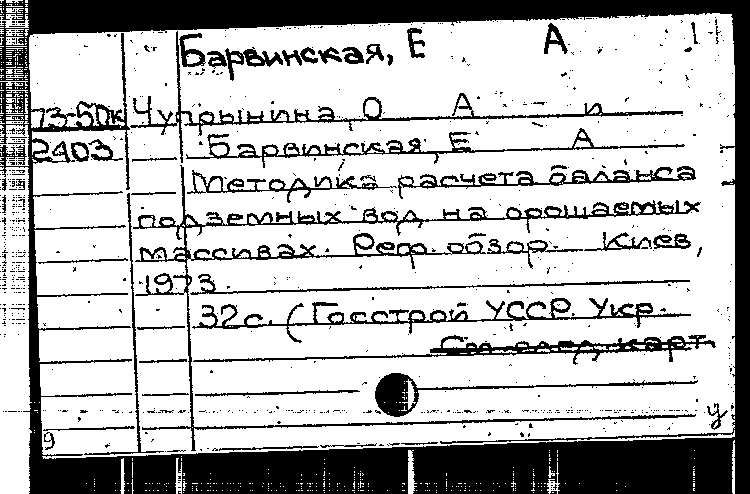 Барвинская, Е А 1
73-5Пк Чупрынина, О А и
2403 Барвинская, Е А
Методика расчета баланса
подземных вод на орошаемых
массивах. Реф. обзор. Киев,
1973.
32с. (Госстрой УССР. Укр.
См. след. карт.
9 у